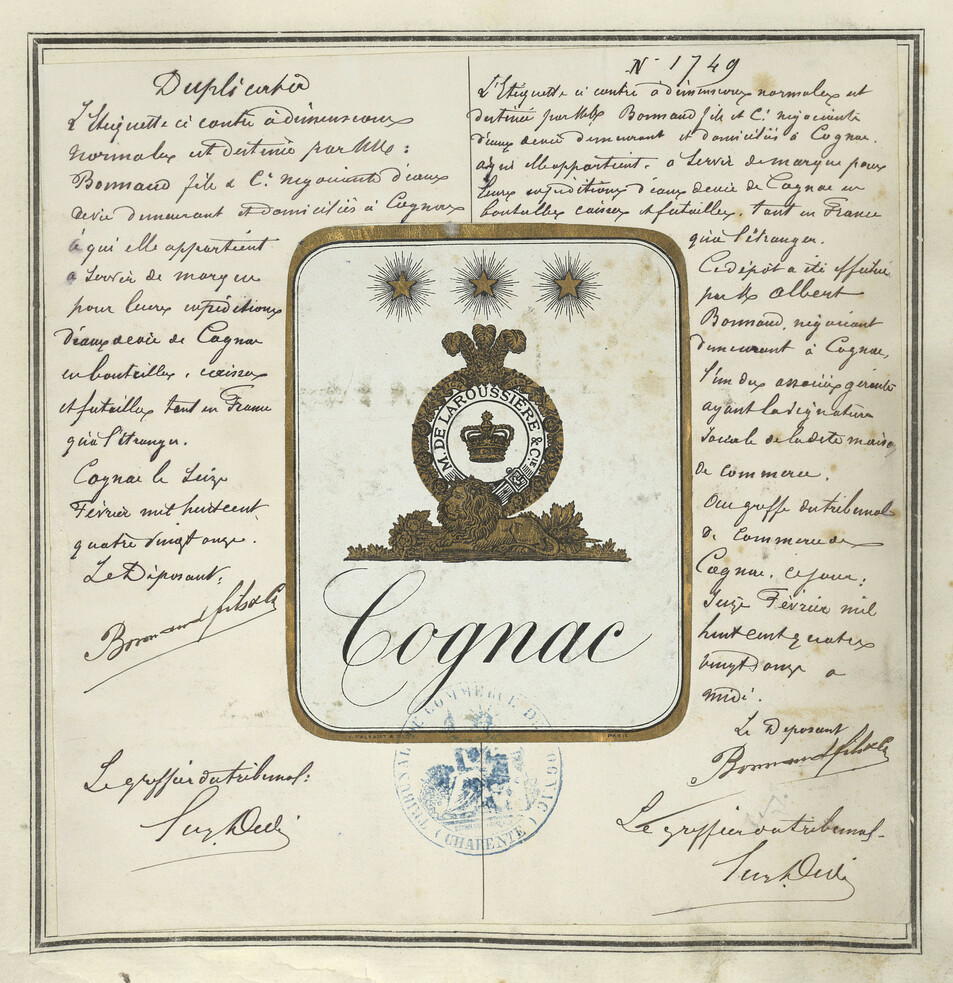 Duplicata
L'Etiquette ci contre à dimensions
normales est destinée par MM:
Bonnaud fils & Cie négociants d'eaux
de vie demeurant et domiciliés à Cognac
à qui elle appartient
à servir de marque
pour leurs expéditions
d'eaux de vie de Cognac
en bouteilles, caisses
et futailles tant en France
qu'à l'étranger.
Cognac le seize
Février mil huit cent
quatre vingt onze.
Le Déposant:
Bonnaud fils & Cie
Le greffier du tribunal:
N° 1749
L'Etiquette ci contre à dimensions normales est
destinée par MM Bonnaud fils et Cie négociants
d'eaux de vie demeurant et domiciliés à Cognac.
à qui elle appartient. à servir de marque pour
leurs expéditions d'eaux de vie de Cognac en
bouteilles caisses et futailles. tant en France
qu'à l'étranger.
Ce dépôt a été effectué
par M Albert
Bonnaud, négociant
demeurant à Cognac,
l'un des associés gérants
ayant la signature
sociale de la dite maison
de commerce.
Au greffe du tribunal
de Commerce de
Cognac, ce jour:
Seize Février mil
huit cent quatre
vingt onze à
midi.
Le Déposant
Bonnaud fils & Cie
Le greffier du tribunal-
M. DE LAROUSSIÈRE & CIE
Cognac
PARIS
TRIBUNAL DE COMMERCE DE COGNAC
(CHARENTE)